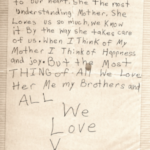 to our heart. She the most
understanding Mother. She
Loves us so much, we know
it By the way she takes care
of us. When I Think of My
Mother I Think of Happiness
and joy. But the Most
THING of All We Love
Her Me my Brothers and
ALL
We
Love